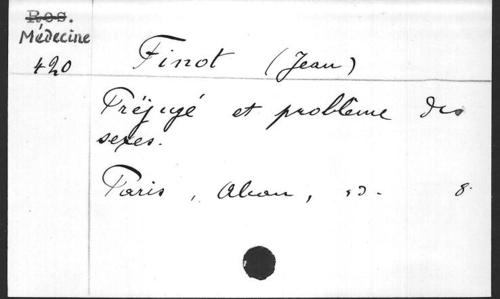 Res.
Médecine
420
Finot (Jean)
Préjugé et problème des
sexes.
Paris, Alcan, s.d. 8.